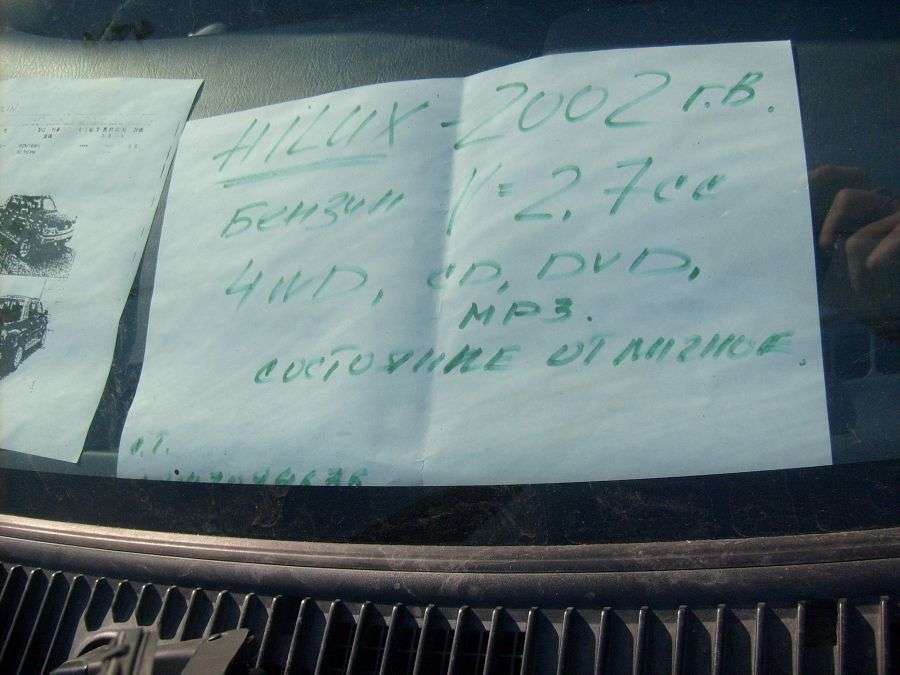 HiLUX - 2002 г.в.
Бензин V = 2,7 сс
4WD, CD, DVD,
МР3.
СОСТОЯНИЕ ОТЛИЧНОЕ.